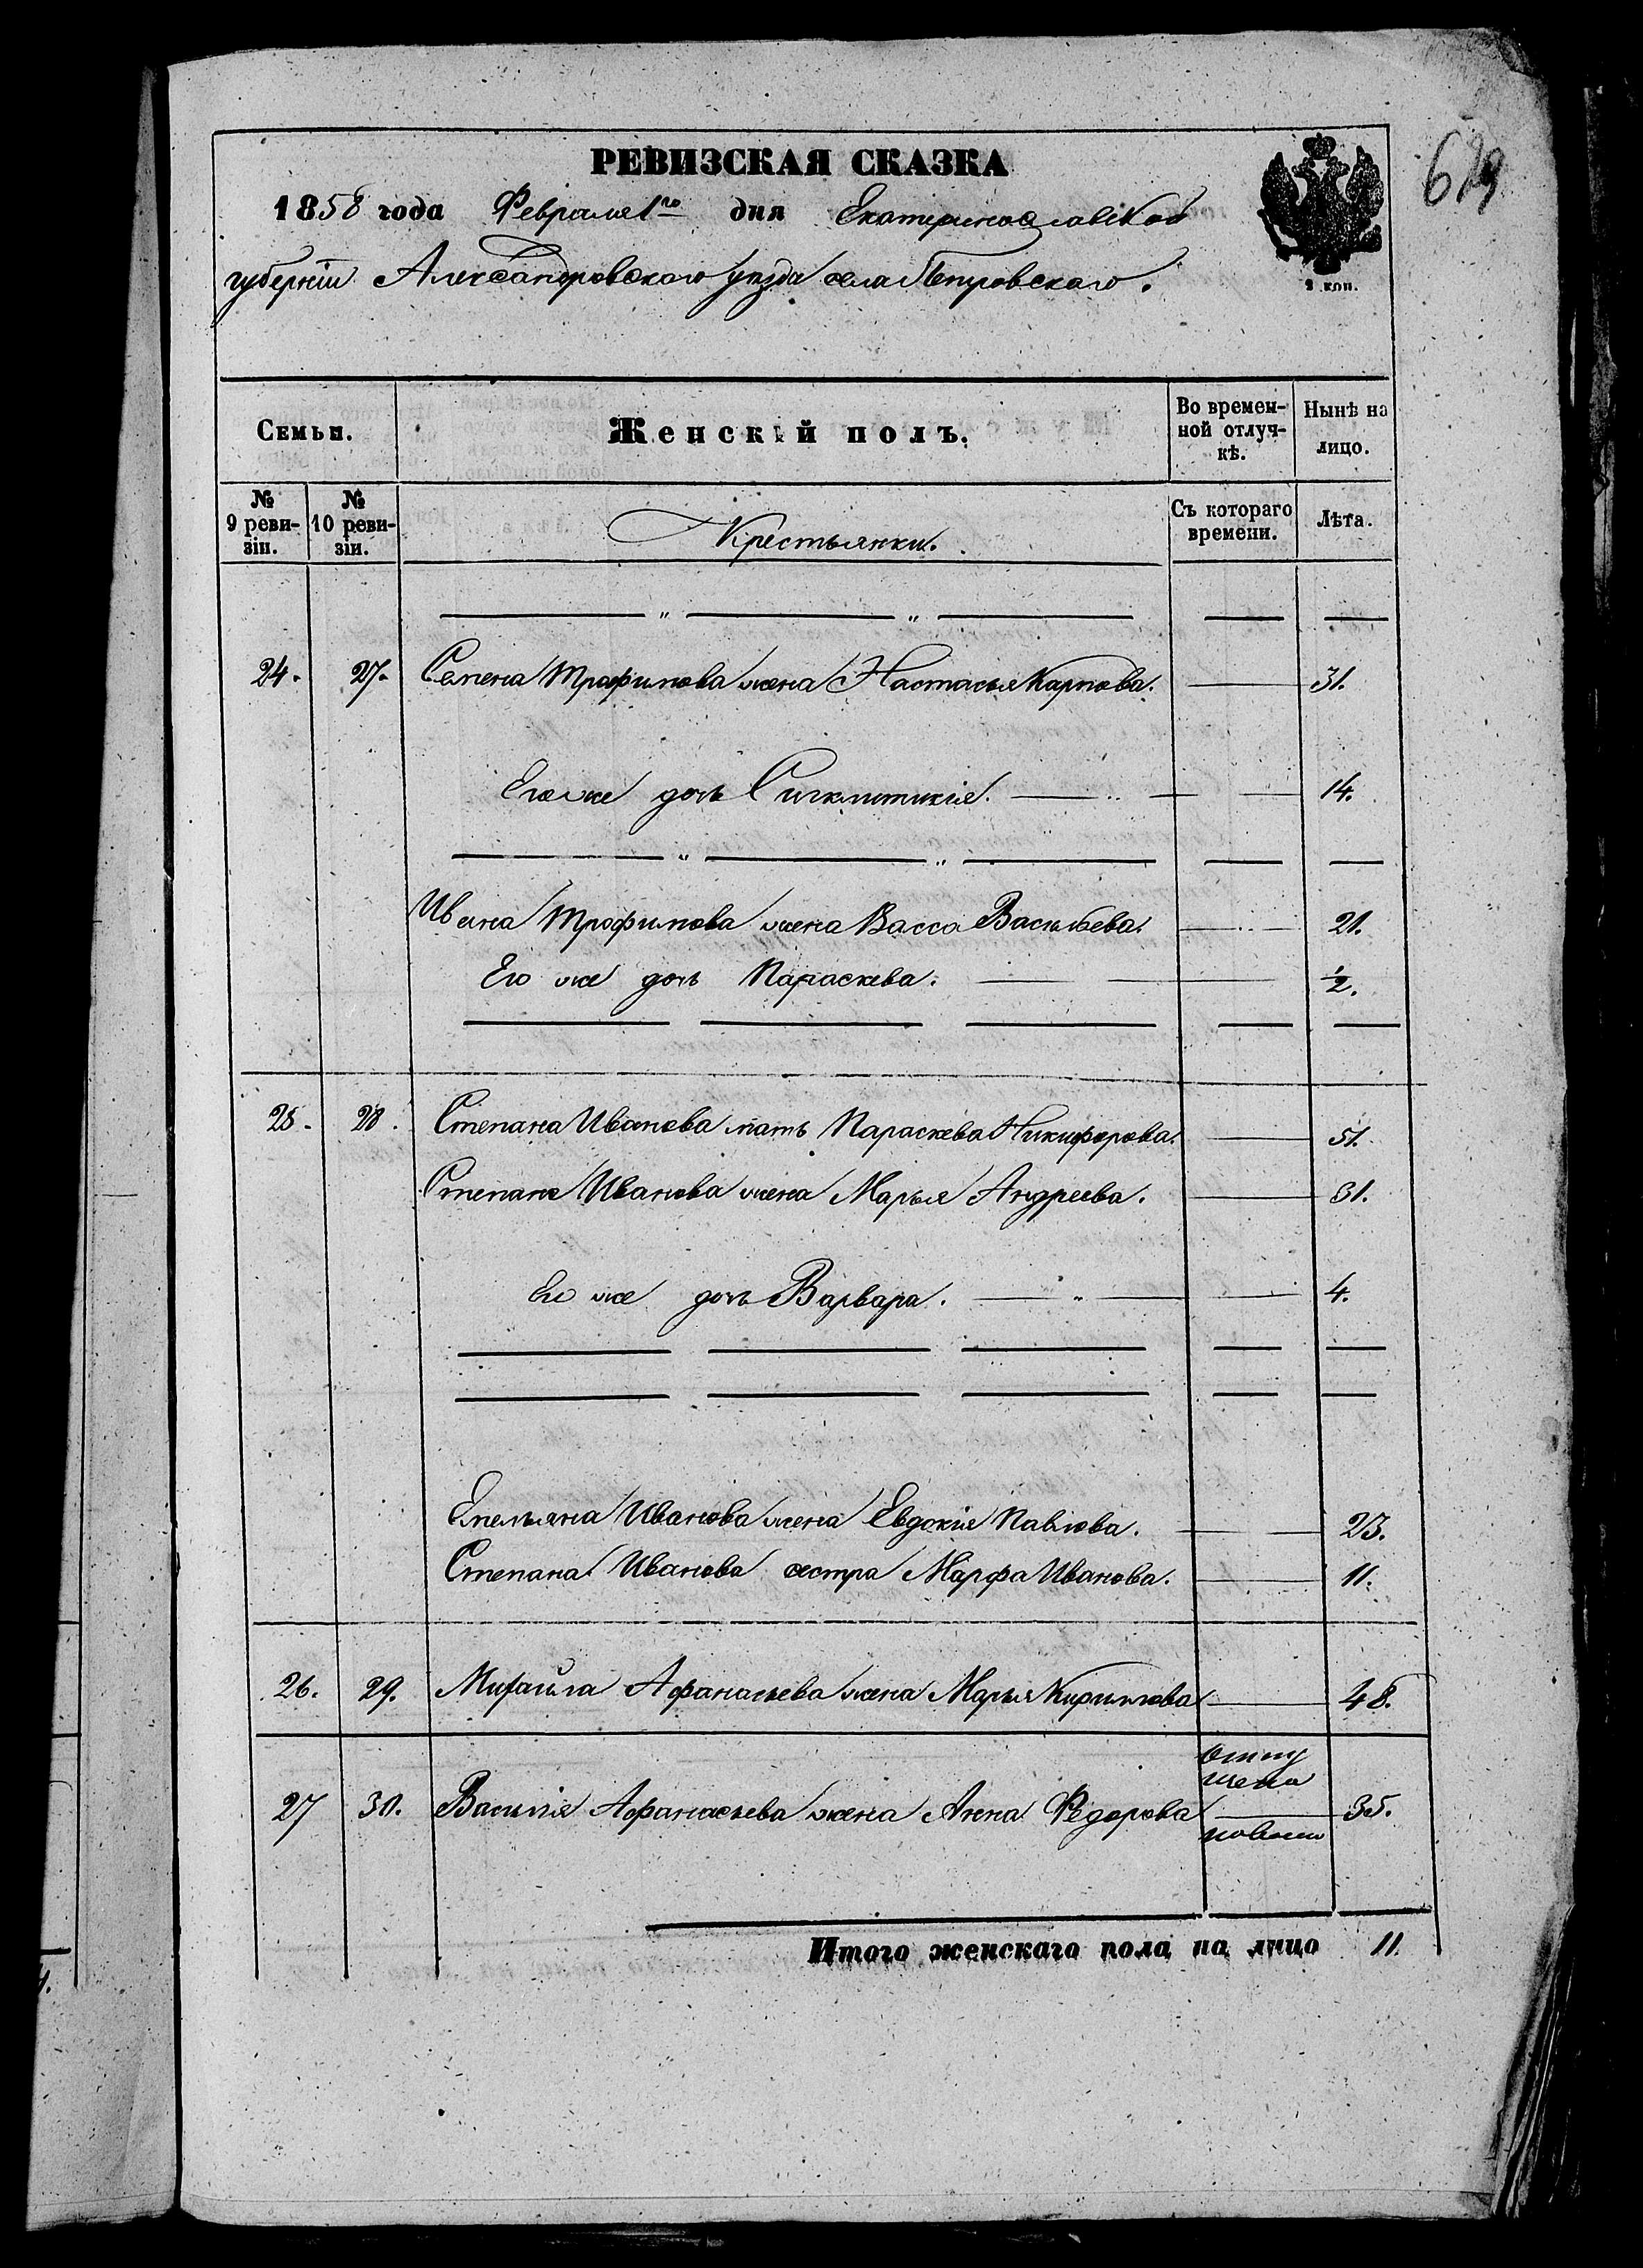 639
РЕВИЗСКАЯ СКАЗКА
1858 года Февраля 1го дня Екатеринославской
губерніи Александровского уѣзда села Петровскаго.
2 коп.
Семьи. Женскій полъ. Во времен-ной отлуч-кѣ. Нынѣ на лицо.
№ 9 реви-зіи. № 10 реви-зіи. Крестьянки. Съ котораго времени. Лѣта.
24. 27. Семена Трофимова жена Настасья Карпова. 31.
Его же дочь Сигклитикія. 14.
Ивана Трофимова жена Васса Васильева. 21.
Его же дочь Параскева. 1/2.
25. 28. Степана Иванова мать Параскева Никифорова. 51.
Степана Иванова жена Марья Андреева. 31.
Его же дочь Варвара. 4.
Емельяна Иванова жена Евдокія Павлова. 23.
Степана Иванова сестра Марфа Иванова. 11.
26. 29. Михайла Афанасьева жена Марья Кирилова 48.
27 30. Василія Афанасьева жена Анна Федорова 35.
Итого женскаго пола на лицо 11.